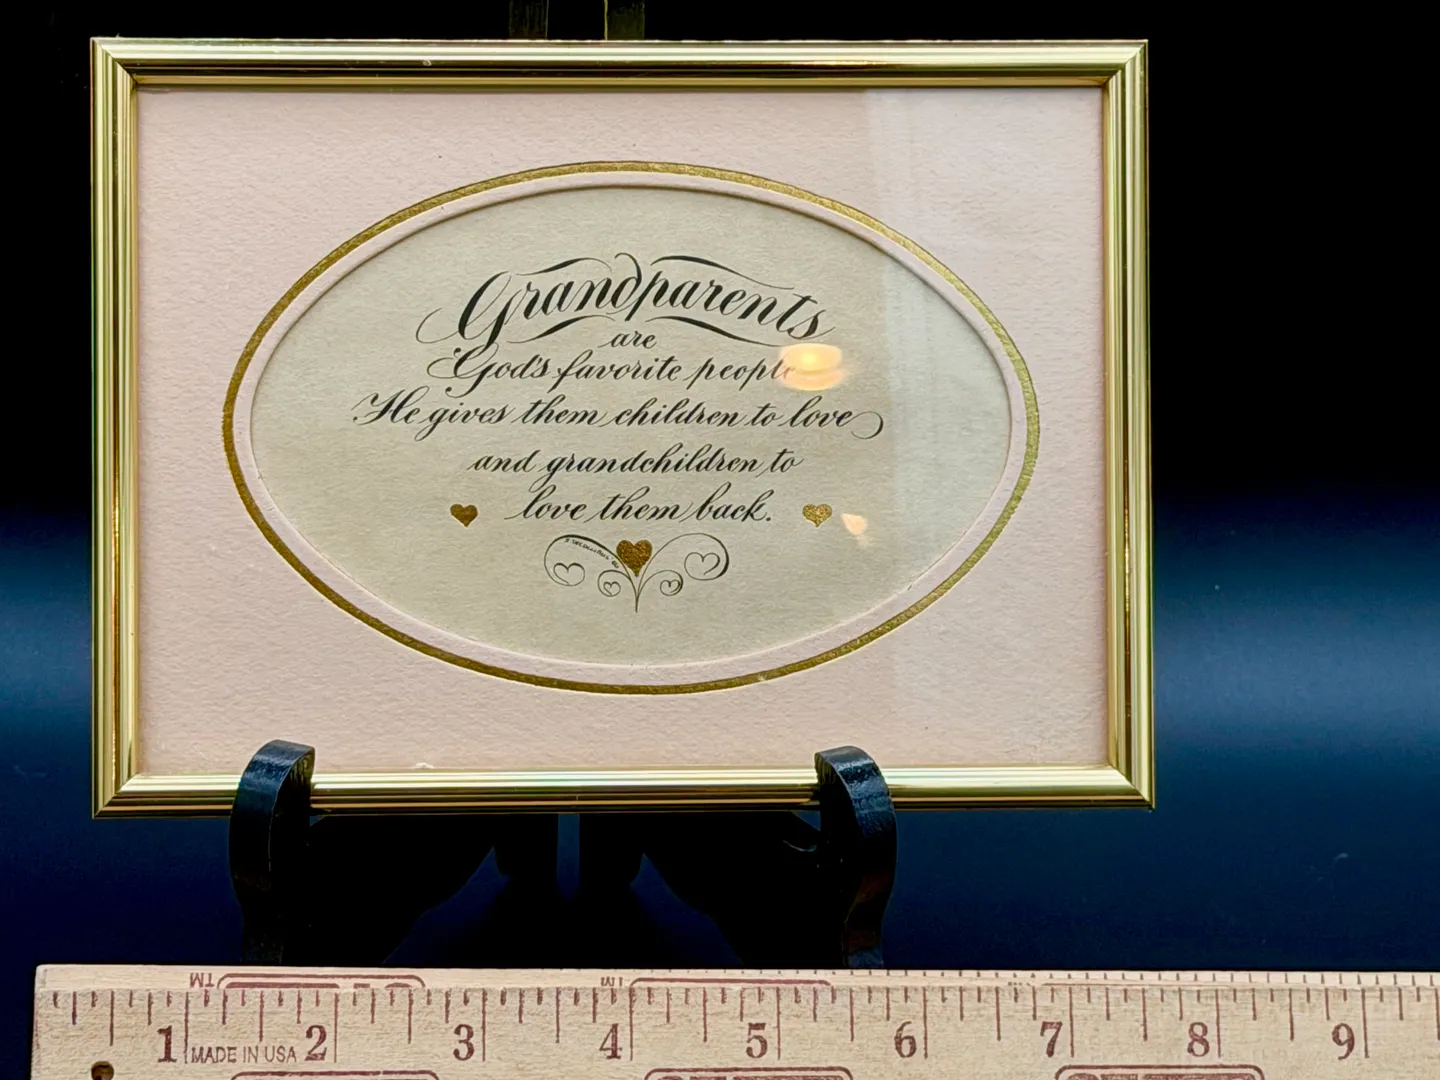 Grandparents
are
God's favorite people
He gives them children to love
and grandchildren to
love them back.
TM TM
1 2 3 4 5 6 7 8 9
MADE IN USA